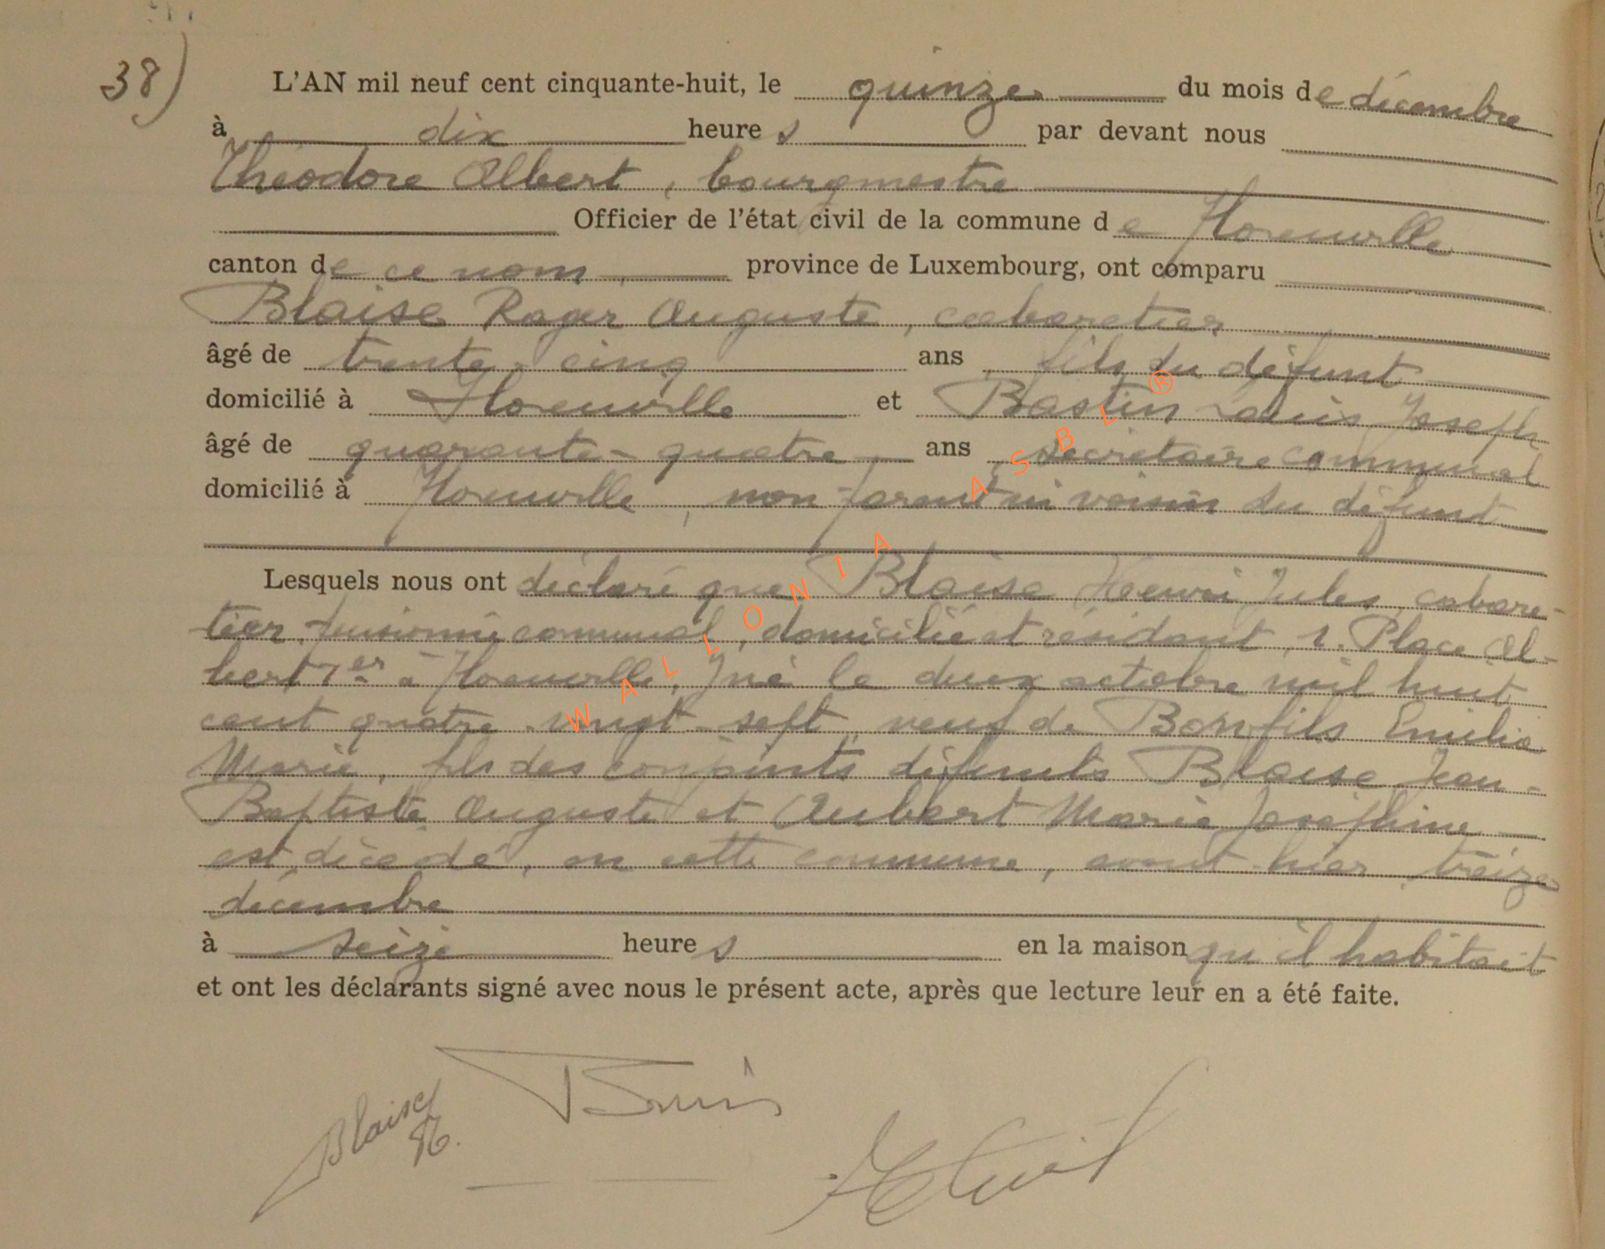 38)
L'AN mil neuf cent cinquante-huit, le quinze du mois de décembre
à dix heures par devant nous
Théodore Albert, bourgmestre
Officier de l'état civil de la commune de Florenville
canton de ce nom province de Luxembourg, ont comparu
Blaise Roger Auguste, cabaretier
âgé de trente-cinq ans, fils du défunt
domicilié à Florenville et Bastin Louis Joseph
âgé de quarante-quatre ans, secrétaire communal
domicilié à Florenville, non parent ni voisin du défunt
Lesquels nous ont déclaré que Blaise Henri Jules, cabare-
tier, pensionné communal, domicilié et résidant, 1. Place Al-
bert 1er à Florenville, né le deux octobre mil huit
cent quatre-vingt-sept, veuf de Bonfils Emilie
Marie, fils des conjoints défunts Blaise Jean-
Baptiste Auguste et Aubert Marie Joséphine
est décédé, en cette commune, avant-hier, treize
décembre
à seize heures en la maison qu'il habitait
et ont les déclarants signé avec nous le présent acte, après que lecture leur en a été faite.
Blaise
WALLONIA ASBL ®